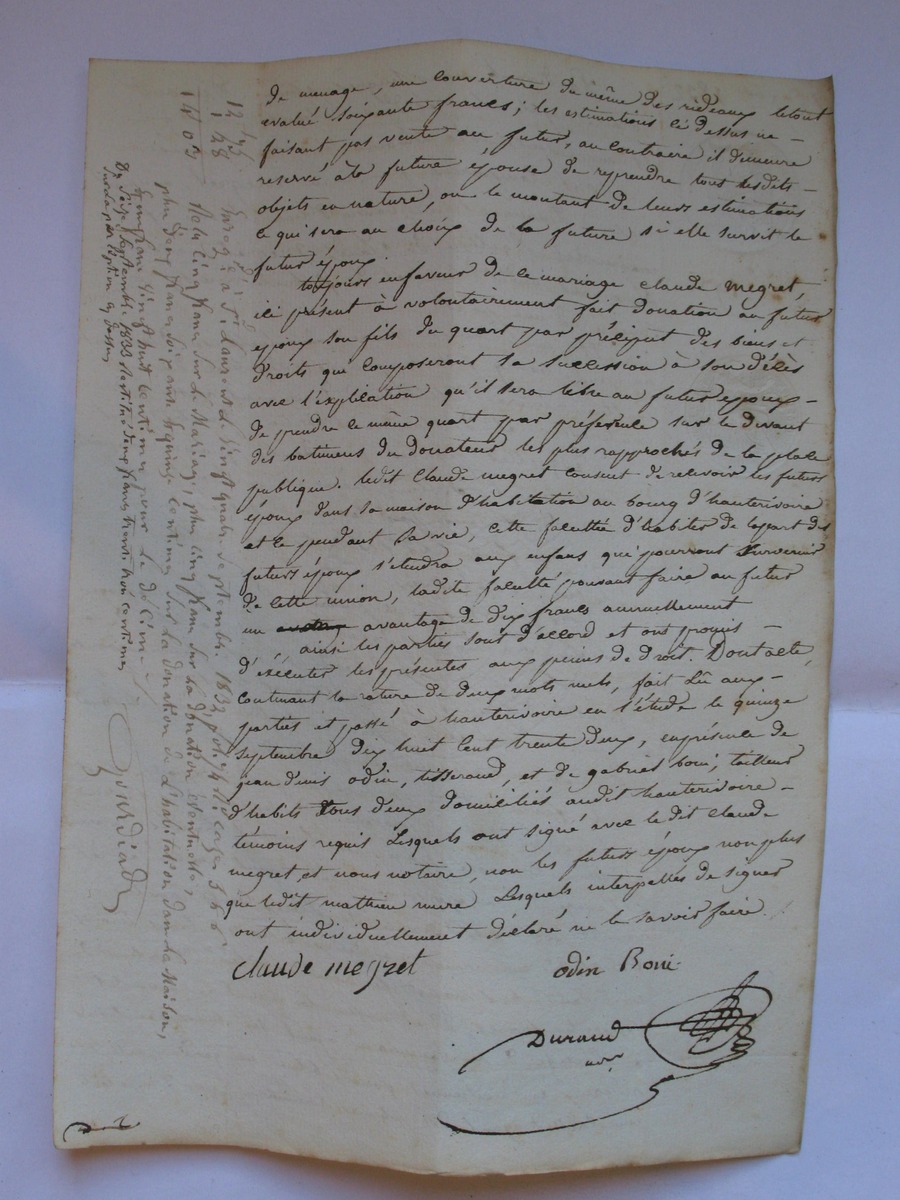 de menage, une couverture du même des rideaux letout
evalué soixante francs; les estimations ci dessus ne –
faisant pas vente au futur, au contraire il demeure
reservé à la future épouse de reprendre tous lesdits –
objets en nature, ou le montant de leurs estimations
ce qui sera au choix de la future si elle survit le
futur époux.
toujours enfaveur de ce mariage claude megret,
ici présent à volontairement fait donation au futur
epoux son fils du quart par préciput des biens et
droits qui composeront sa succession à son décès
avec l'explication qu'il sera libre au futur epoux –
de prendre le même quart par préférence sur le devant
des batimens du donateur les plus rapprochés de la place
publique. ledit Claude megret consent de recevoir les futurs
époux dans sa maison d'habitation au bourg d'hauterivoire
et ce pendant sa vie, cette faculté d'habiter de lapart des
futurs époux s'etendra aux enfans qui pourront survenir
de cette union, ladite faculté pouvant faire au futur
un avantage de dix francs annuellement
ainsi les parties sont d'accord et ont promis –
d'éxécuter les présentes aux peines de droit. Dont acte,
contenant la rature de deux mots nuls, fait Lû aux –
parties et passé à hauterivoire en l'étude le quinze
septembre dix huit cent trente deux, enprésence de
jean denis odin, tisserand, et de gabriel boni, tailleur
d'habits tous deux domiciliés audit hauterivoire –
témoins requis Lesquels ont signé avec le dit claude
megret, et nous notaire, non les futurs époux non plus
que ledit mathieu mure Lesquels interpellés de signer
ont individuellement déclaré ne le savoir faire.
claude megret
odin Boni
Durand
nore
12
1 28
14 08
Enregé à St Laurent le vingt quatre septembre 1832
Reçu cinq francs sur le Mariage, plus cinq francs sur la donation éventuelle,
plus deux francs soixante quinze centimes sur la donation de l'habitation dans la Maison,
et un franc vingt huit centimes pour le dixième
Du seize septembre 1833 Restitué deux francs trente trois centimes
sur la perception cy dessus